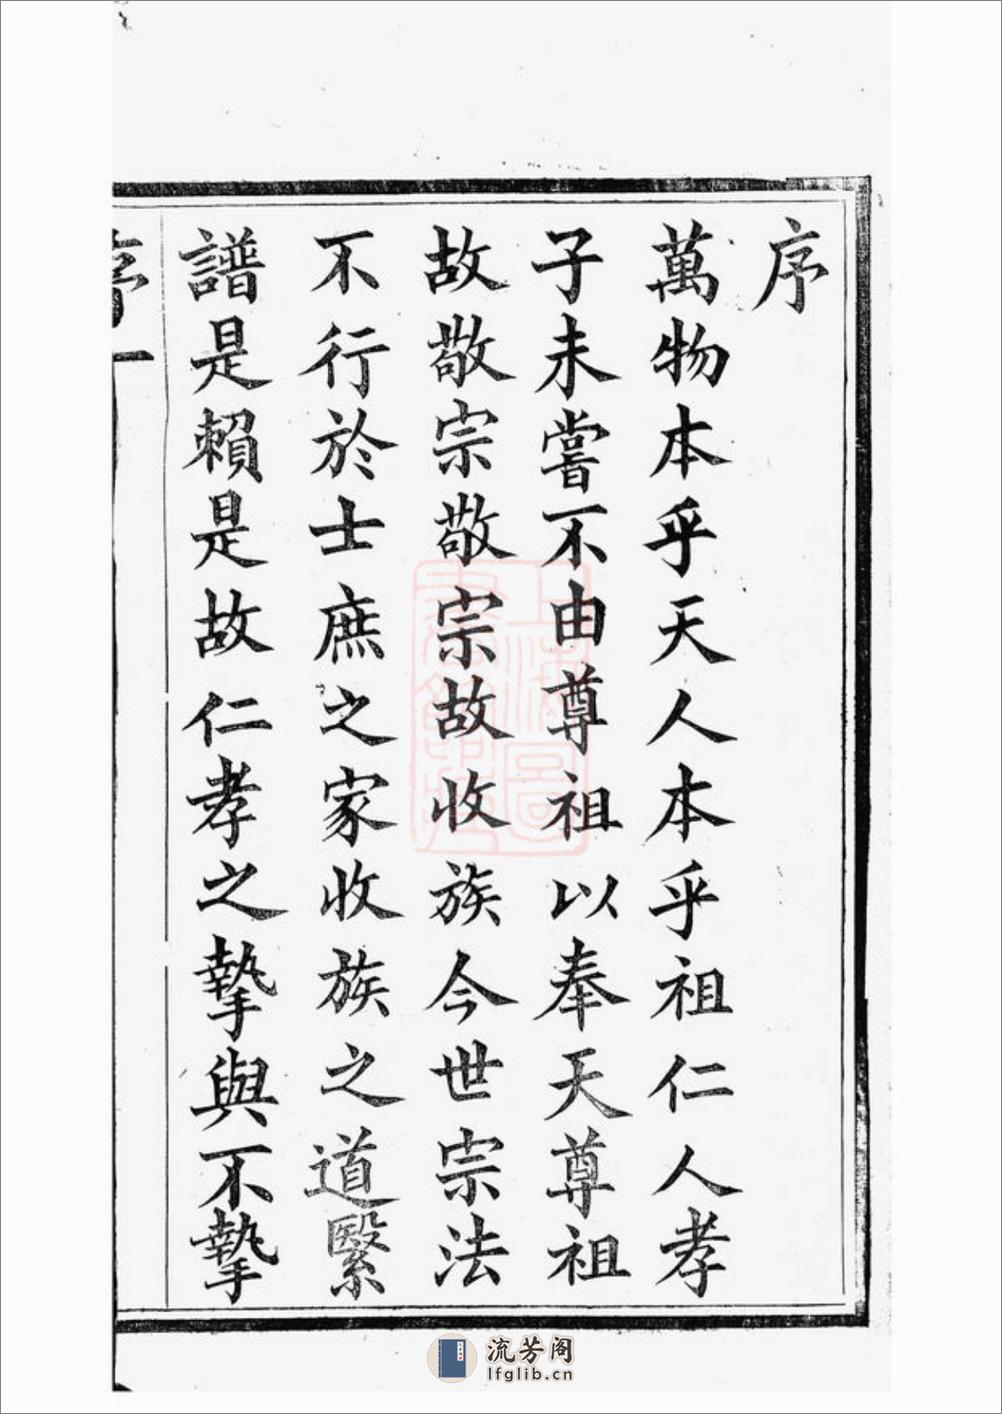 序
萬物本乎天人本乎祖仁人孝
子未嘗不由尊祖以奉天尊祖
故敬宗敬宗故收族今世宗法
不行於士庶之家收族之道繄
譜是賴是故仁孝之摯與不摯
序一
上海圖書館藏
流芳阁
lfglib.cn